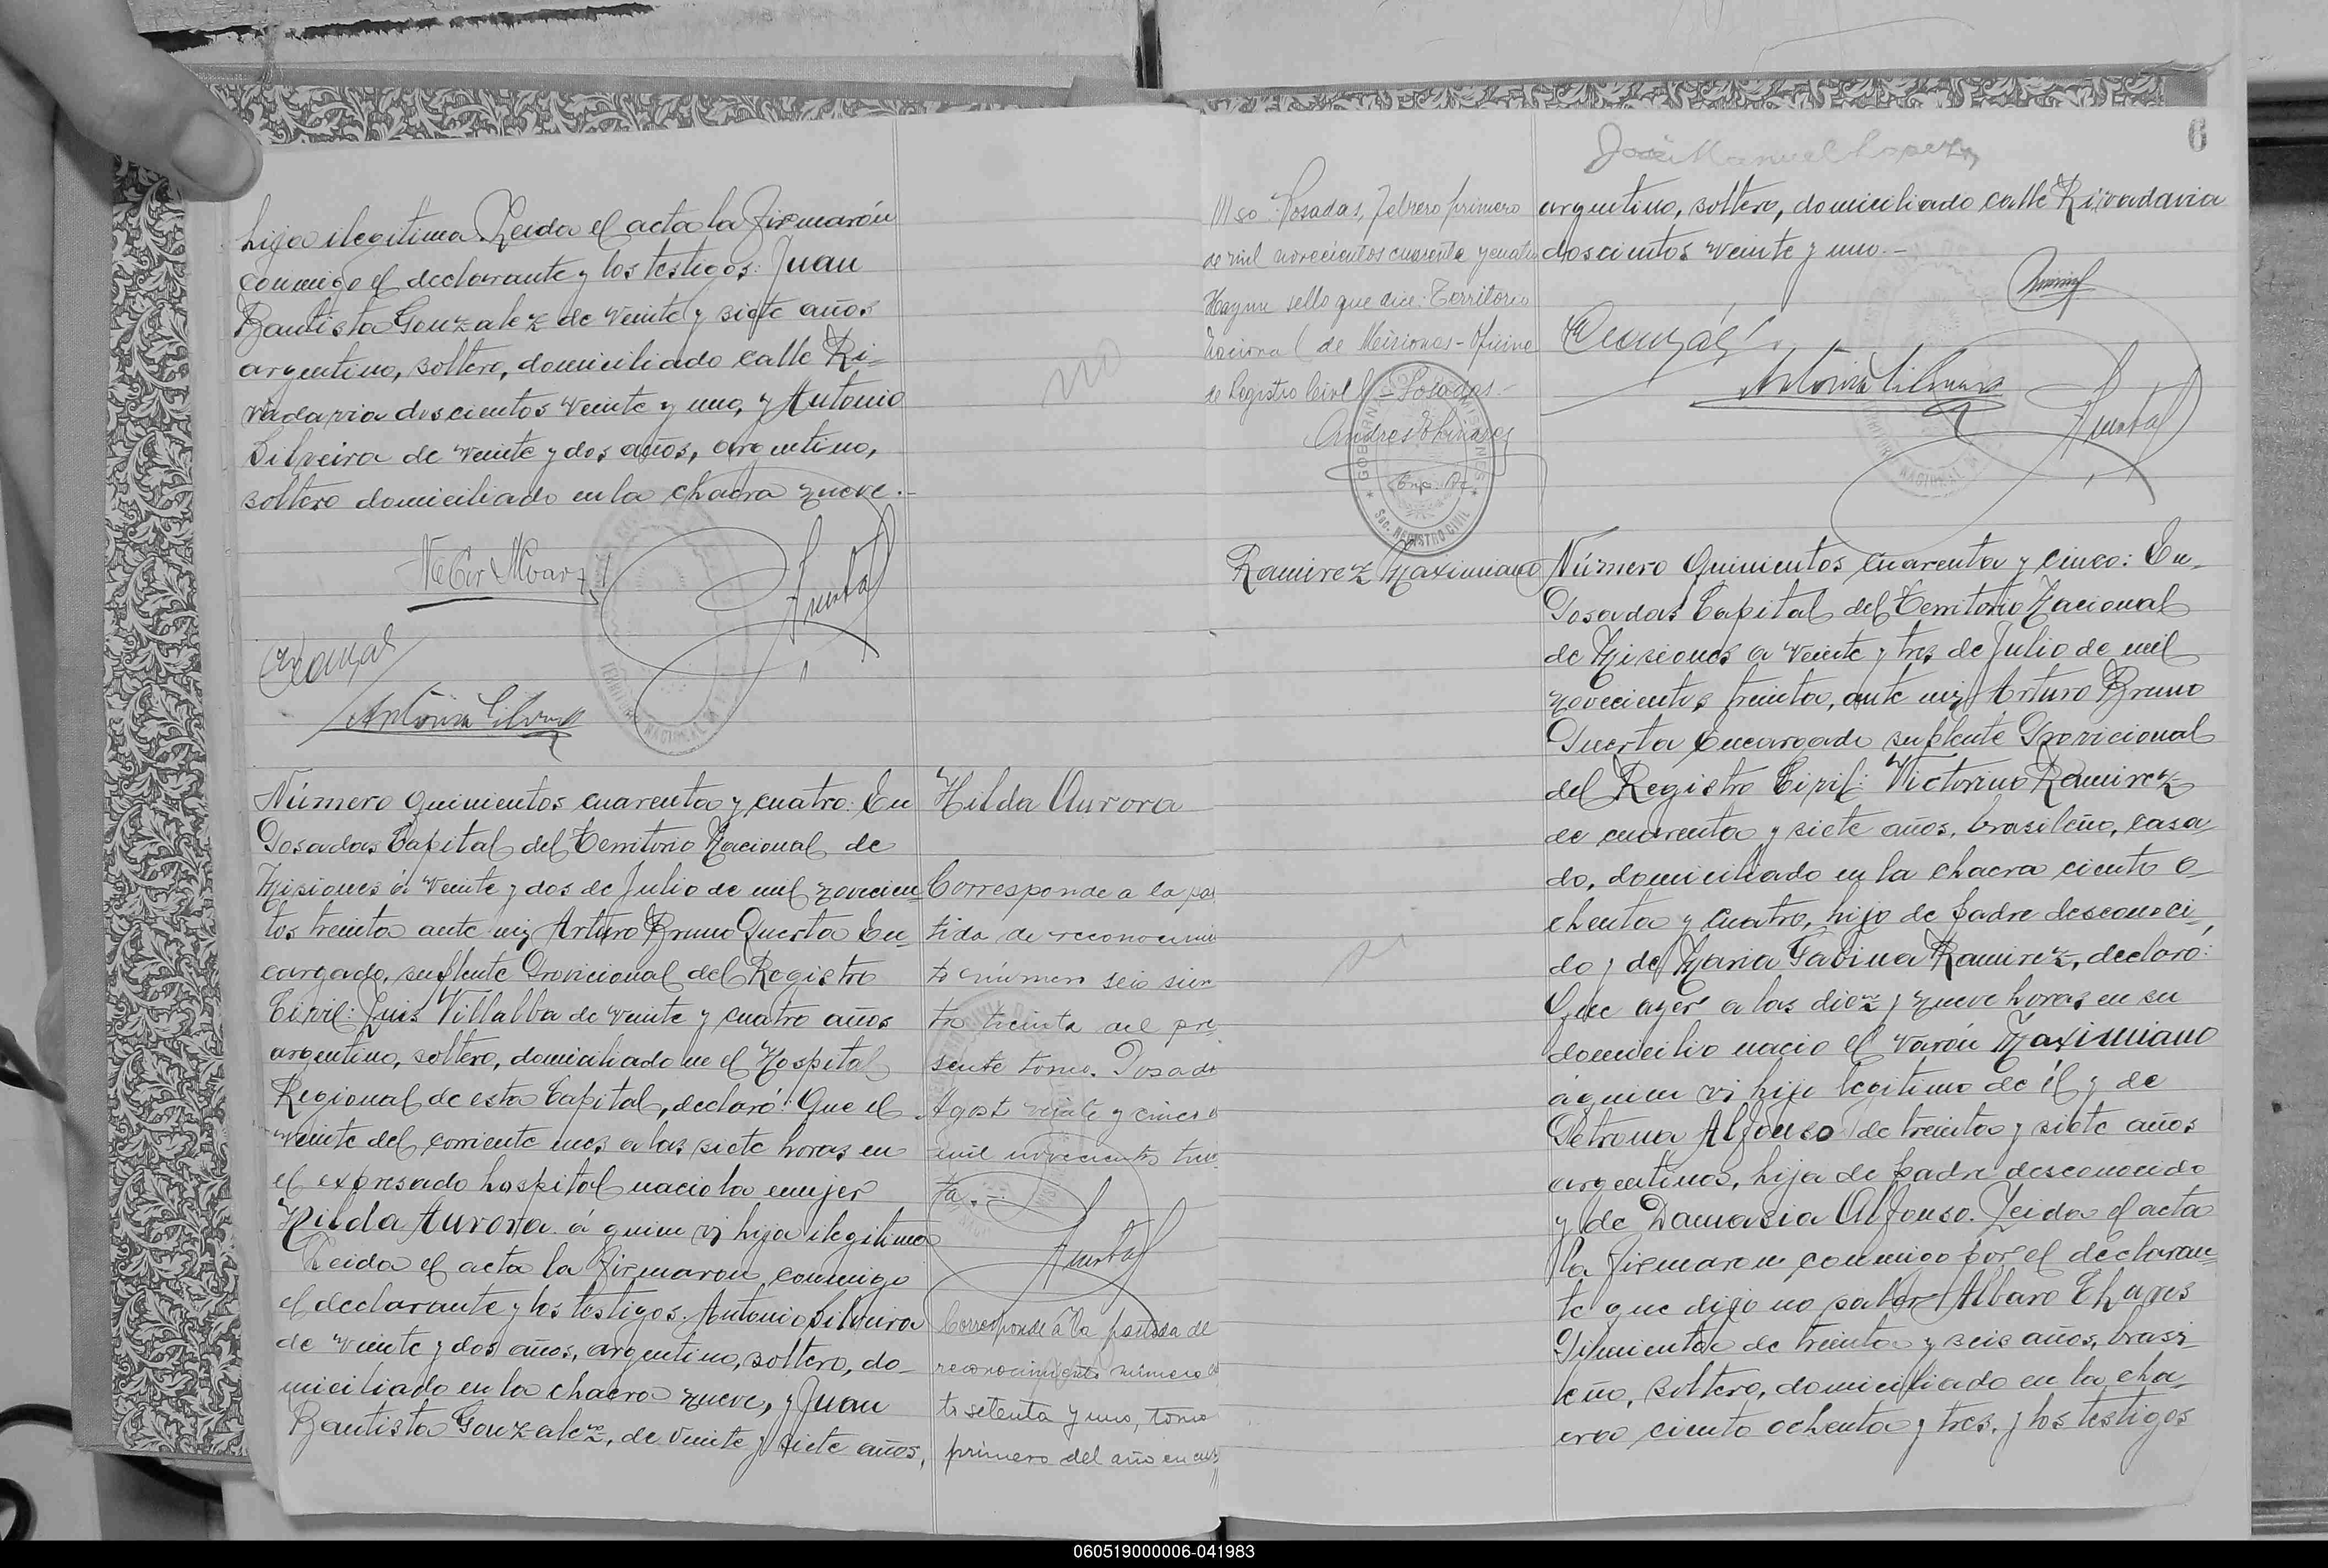 hija ilegitima. Leida el acta la firmarón
conmigo el declarante y los testigos: Juan
Bautista Gonzalez de veinte y siete años
argentino, soltero, domiciliado calle Ri-
vadavia doscientos veinte y uno, y Antonio
Silveira de veinte y dos años, argentino,
soltero domiciliado en la chacra nueve.-
no
Número quinientos cuarenta y cuatro: En
Posadas Capital del Territorio Nacional de
Misiones á veinte y dos de Julio de mil novecien-
tos treinta ante mi, Arturo Bruno Puerta En-
cargado, suplente Provicional del Registro
Civil: Luis Villalba de veinte y cuatro años
argentino, soltero, domiciliado en el Hospital
Regional de esta Capital, declaró: Que el
veinte del corriente mes a las siete horas en
el expresado hospital nacio la mujer
Hilda Aurora á quien vi hija ilegitima
Leida el acta la firmaron conmigo
el declarante y los testigos. Antonio Silveira
de veinte y dos años, argentino, soltero, do-
miciliado en la chacra nueve, y Juan
Bautista Gonzalez, de veinte y siete años,
Hilda Aurora
Corresponde a la par
tida de reconocimi
to número seis cien
to treinta del pre
sente tomo. Posada
Agosto veinte y cinco
mil novecientos trein
ta.-
Corresponde á la partida de
reconocimiento número
to setenta y uno, tomo
primero del año en curs
6
José Manuel Lopez
argentino, soltero, domiciliado calle Rivadavia
doscientos veinte y uno.-
Posadas, Febrero primero
de mil novecientos cuarenta y cuatro
Hay un sello que dice: Territorio
Nacional de Misiones - Oficina
de Registro Civil - Posadas -
GOBERN MISIONES
Sec. REGISTRO CIVIL
Ramirez Maximiano
Número quinientos cuarenta y cinco: En
Posadas Capital del Territorio Nacional
de Misiones a veinte y tres de Julio de mil
novecientos treinta, ante mi, Arturo Bruno
Puerta Encargado suplente Provicional
del Registro Civil: Victorino Ramirez
de cuarenta y siete años, brasileño, casa
do, domiciliado en la chacra ciento o-
chenta y cuatro, hijo de padre desconoci-
do y de Maria Gabina Ramirez, declaro:
Que ayer a las diez y nueve horas en su
domicilio nacio el varón Maximiano
á quien vi hijo legitimo de él y de
Petrona Alfonso de treinta y siete años
argentinos, hija de padre desconocido
y de Damasia Alfonso. Leida el acta
la firmaron conmigo por el declaran-
te que dijo no saber Albaro Chaves
Pimienta de treinta y seis años, brasi-
leño, soltero, domiciliado en la cha-
cra ciento ochenta y tres. y los testigos
060519000006-041983